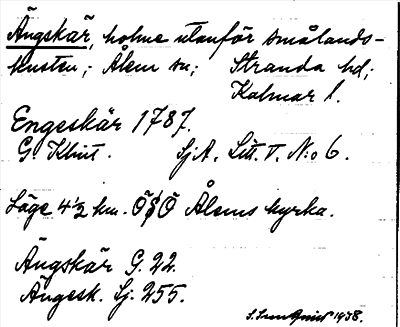 Ängskär, holme utanför smålands-
kusten; Ålem sn; Stranda hd;
Kalmar l.
Engeskär 1787.
G. Klint. SjA. Litt. V. N:o 6.
Läge 4½ km. ÖSÖ Ålems kyrka.
Ängskär G. 22.
Ängesk. Sj. 255.
S. Sundquist 1938.